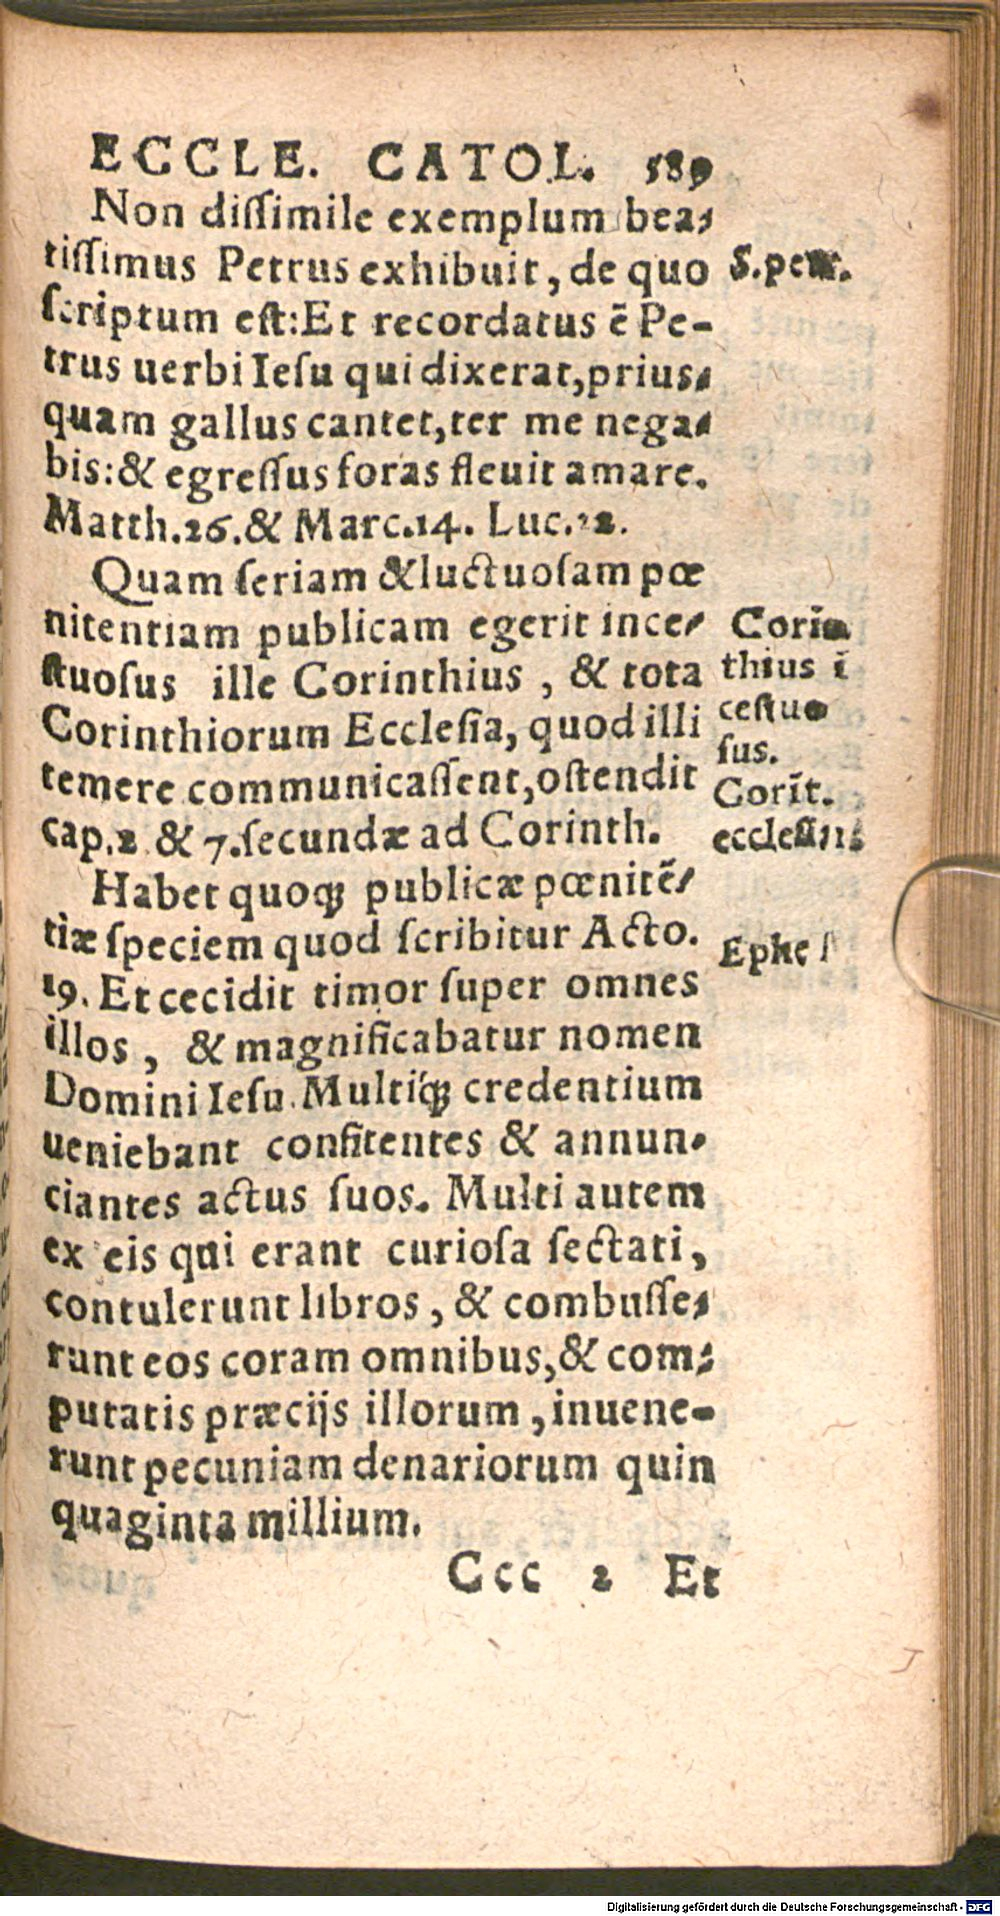 ECCLE. CATOL. 389
Non dissimile exemplum bea-
tissimus Petrus exhibuit, de quo
scriptum est: Et recordatus ē Pe-
trus uerbi Iesu qui dixerat, prius-
quam gallus cantet, ter me nega-
bis: & egressus foras fleuit amare.
Matth. 26. & Marc. 14. Luc. 22.
Quam seriam & luctuosam pœ
nitentiam publicam egerit ince-
stuosus ille Corinthius, & tota
Corinthiorum Ecclesia, quod illi
temere communicassent, ostendit
cap. 2 & 7. secundæ ad Corinth.
Habet quoqꝫ publicæ pœnitē-
tiæ speciem quod scribitur Acto.
19. Et cecidit timor super omnes
illos, & magnificabatur nomen
Domini Iesu. Multiqꝫ credentium
ueniebant confitentes & annun-
ciantes actus suos. Multi autem
ex eis qui erant curiosa sectati,
contulerunt libros, & combusse-
runt eos coram omnibus, & com-
putatis præcijs illorum, inuene-
runt pecuniam denariorum quin
quaginta millium.
Ccc 2 Et
S. petr.
Corin
thius ī
cestuo
sus.
Corīt.
Ephes
Digitalisierung gefördert durch die Deutsche Forschungsgemeinschaft - DFG